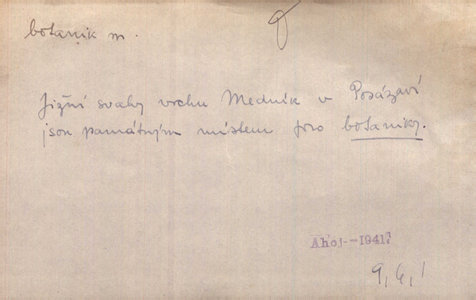 botanik m.
Jižní svahy vrchu Medník v Posázaví
jsou památným místem pro botaniky.
Ahoj--1941
9, 6, 1